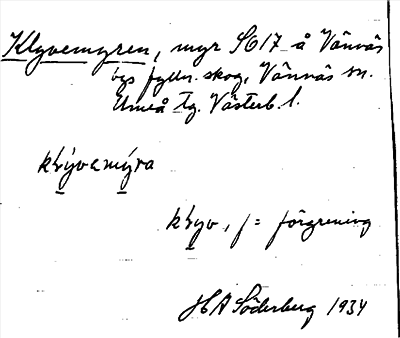 Klyvemyren, myr S617 å Vännäs
bys fylln. skog, Vännäs sn.
Umeå tg. Västerb. l.
klyvemyra
klyv, f = förgrening
H A Söderberg 1934